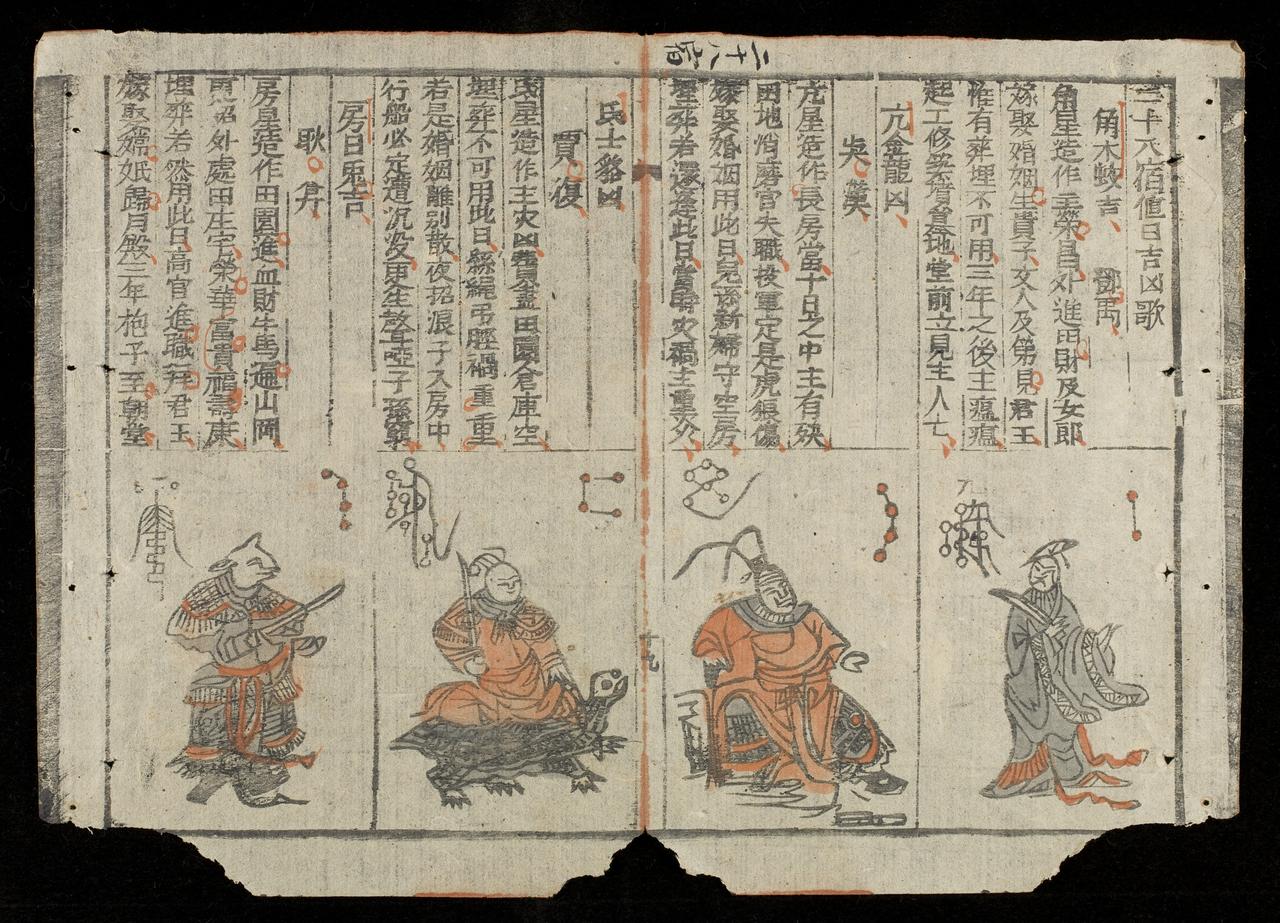 二十八宿
二十八宿值日吉凶歌
角木蛟吉 鄧禹
角星造作主榮昌外進田財及女郎
嫁娶婚姻生貴子文人及第見君王
惟有葬埋不可用三年之後主瘟瘟
起工修筑墳墓地堂前立見主人亡
亢金龍凶
吳漢
亢星造作長房當十日之中主有殃
田地消磨官失職投軍定是虎狼傷
嫁娶婚姻用此日兒孫新婦守空房
埋葬若還逢此日當時灾禍主重
氐士貉凶
賈復
氐星造作主灾凶費盡田園倉庫空
埋葬不可用此日縣繩弔脛禍重重
若是婚姻離別散夜招浪子入房中
行船必定遭沉没更生聾啞子孫窮
房日兎吉
耿弇
房星造作田園進血財牛馬遍山岡
更招外處田庄宅榮華富貴福壽康
埋葬若然用此日高官進職拜君王
嫁娶嫦娥歸月殿三年抱子至朝堂
十九